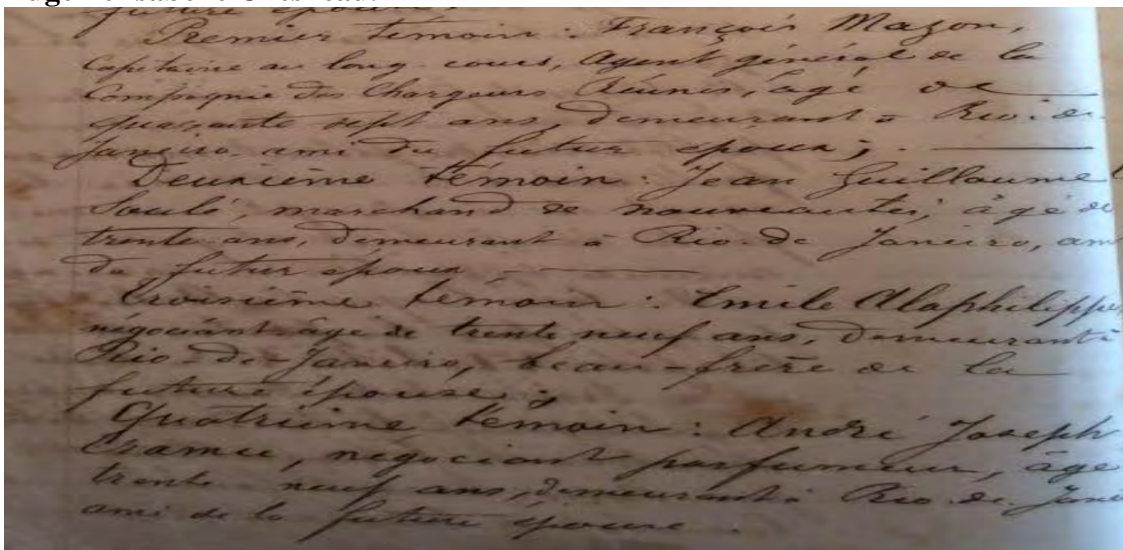 future épouse.
Premier témoin : François Mazon,
Capitaine au long-cours, Agent général de la
Compagnie des Chargeurs Réunis, âgé de
quarante sept ans, demeurant à Rio-de-
Janeiro, ami du futur époux ;
Deuxième témoin : Jean Guillaume
Soulé, marchand de nouveautés, âgé de
trente ans, demeurant à Rio-de Janeiro, ami
du futur époux,
troisième témoin : Emile Alaphilippe,
négociant âgé de trente neuf ans, demeurant à
Rio-de-Janeiro, beau-frère de la
future épouse ;
Quatrième témoin : André Joseph
négociant parfumeur, âgé
trente neuf ans, demeurant à Rio-de-Janei
ami de la future épouse.